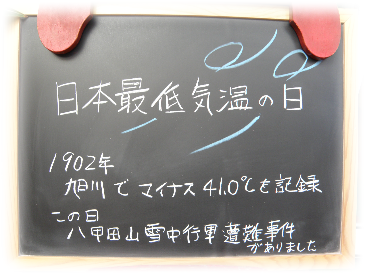 日本最低気温の日
1902年
旭川でマイナス41.0℃を記録
この日
八甲田山雪中行軍遭難事件
がありました